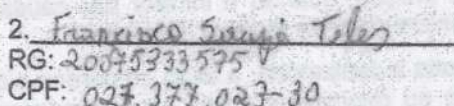 2. Francisco Teles
RG: 20075333575
CPF: 027.377.023-30